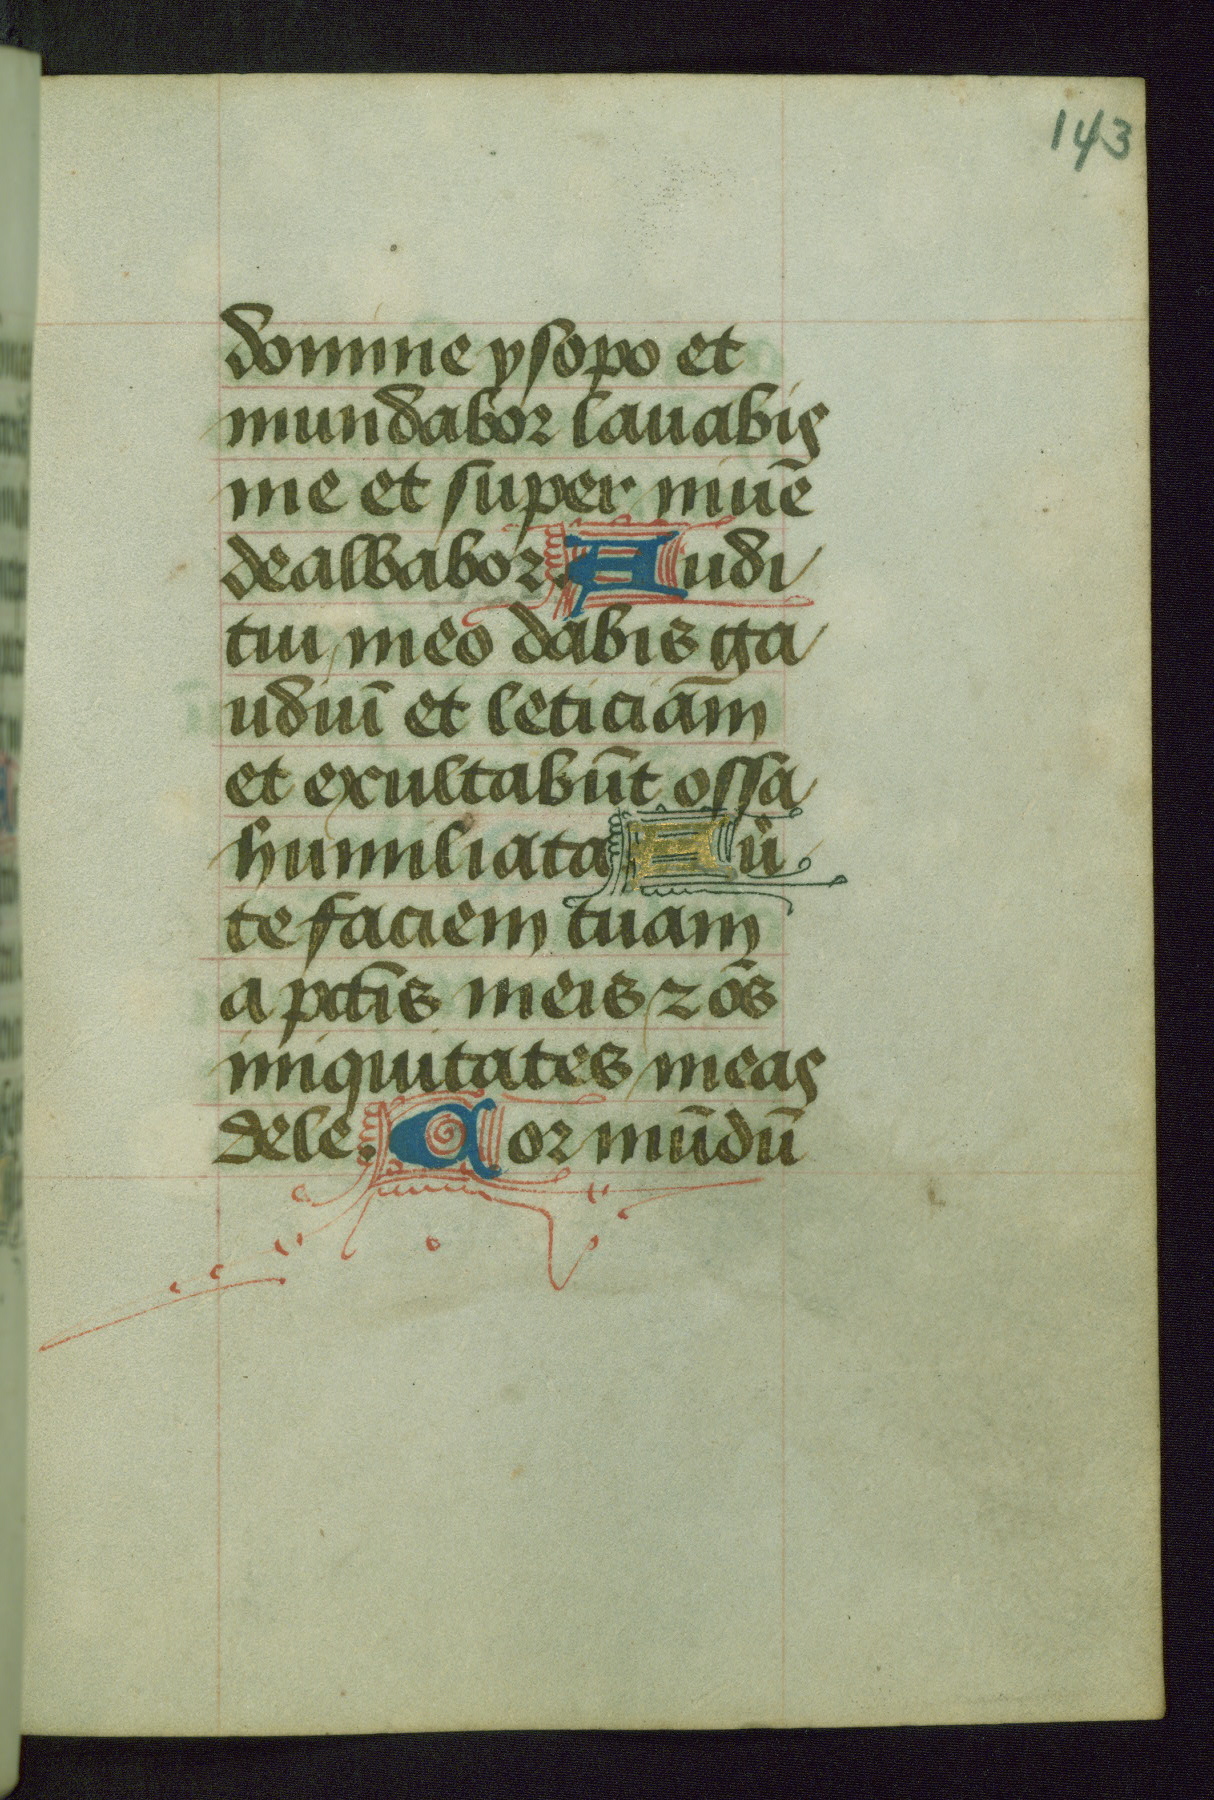 143
domine ysopo et
mundabor lauabis
me et super niuē
dealbabor. Audi
tui meo dabis ga
udiuī et leticiam̄
et exultabūt ossa
humiliata Auͦ
te faciem tuam
a pctīs meis ⁊ oēs
iniquitates meas
dele. Cor mūdū